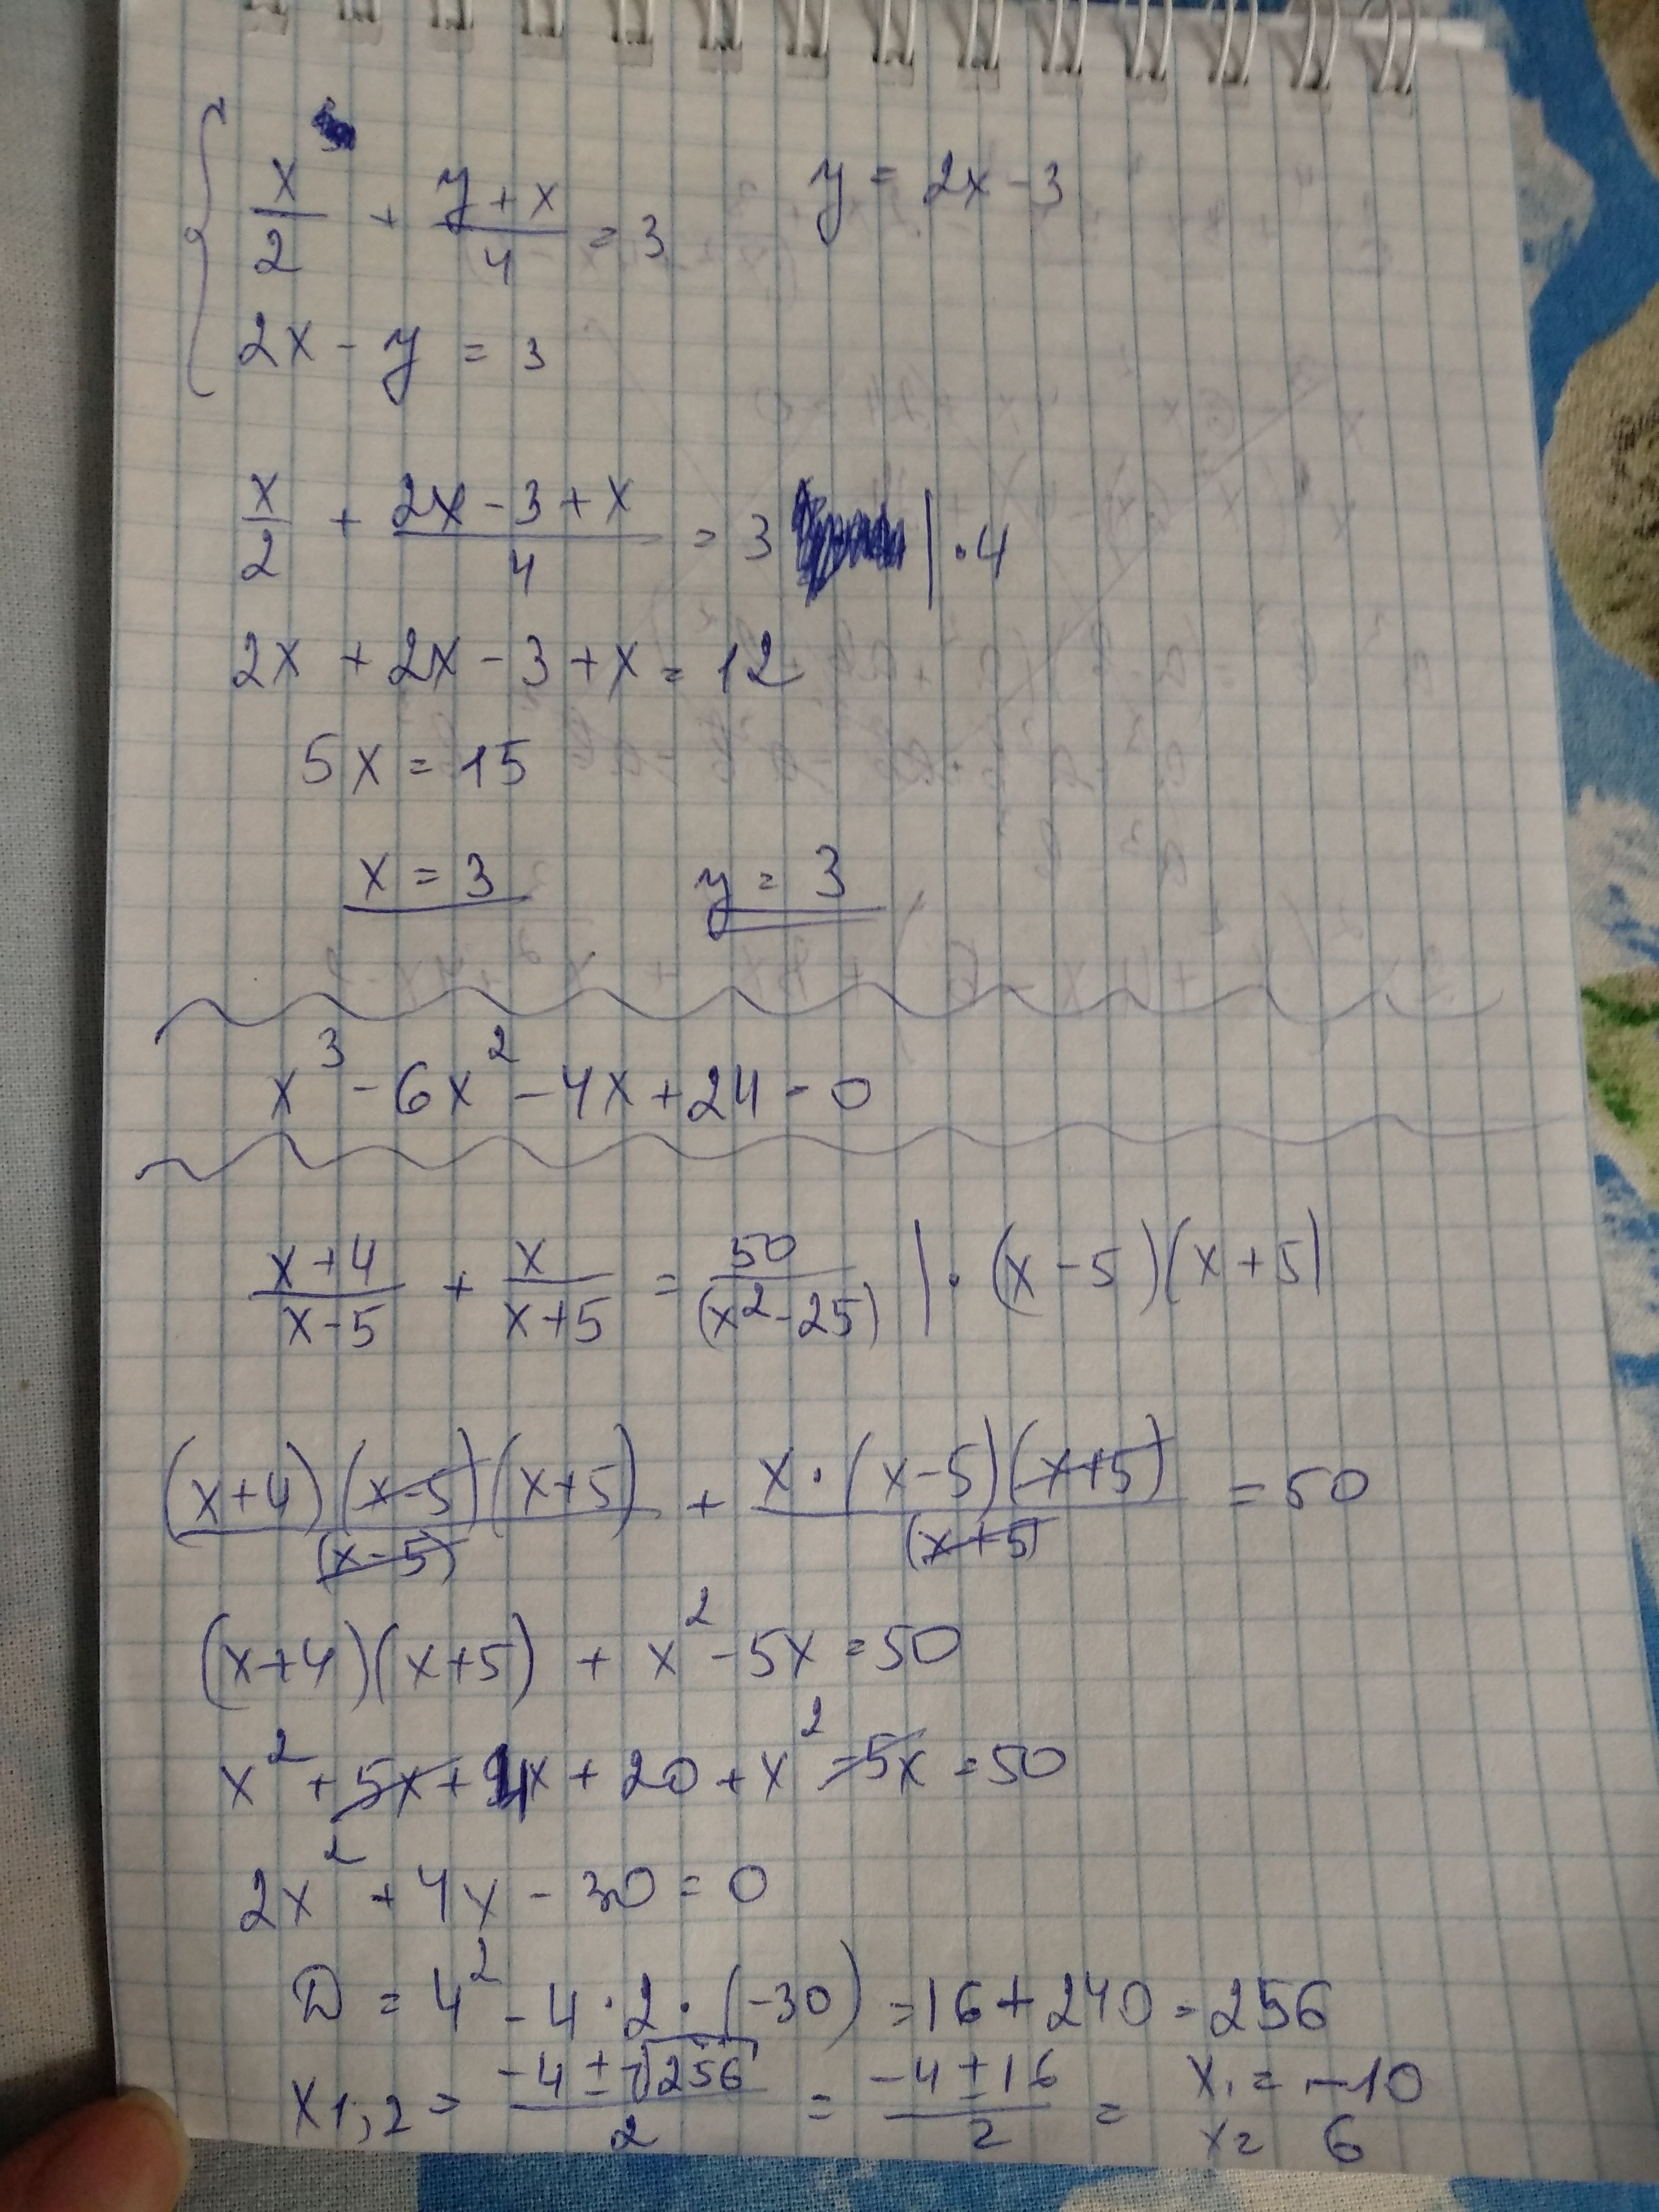 x/2 + (y+x)/4 = 3 y = 2x - 3
2x - y = 3
x/2 + (2x - 3 + x)/4 = 3 | · 4
2x + 2x - 3 + x = 12
5x = 15
x = 3 y = 3
x³ - 6x² - 4x + 24 = 0
(x+4)/(x-5) + x/(x+5) = 50/(x²-25) | · (x-5)(x+5)
(x+4)(x-5)(x+5)/(x-5) + x·(x-5)(x+5)/(x+5) = 50
(x+4)(x+5) + x² - 5x = 50
x² + 5x + 4x + 20 + x² - 5x = 50
2x² + 4x - 30 = 0
D = 4² - 4·2·(-30) = 16 + 240 = 256
x1,2 = (-4 ± √256)/2 = (-4 ± 16)/2 = x1 = -10
x2 6